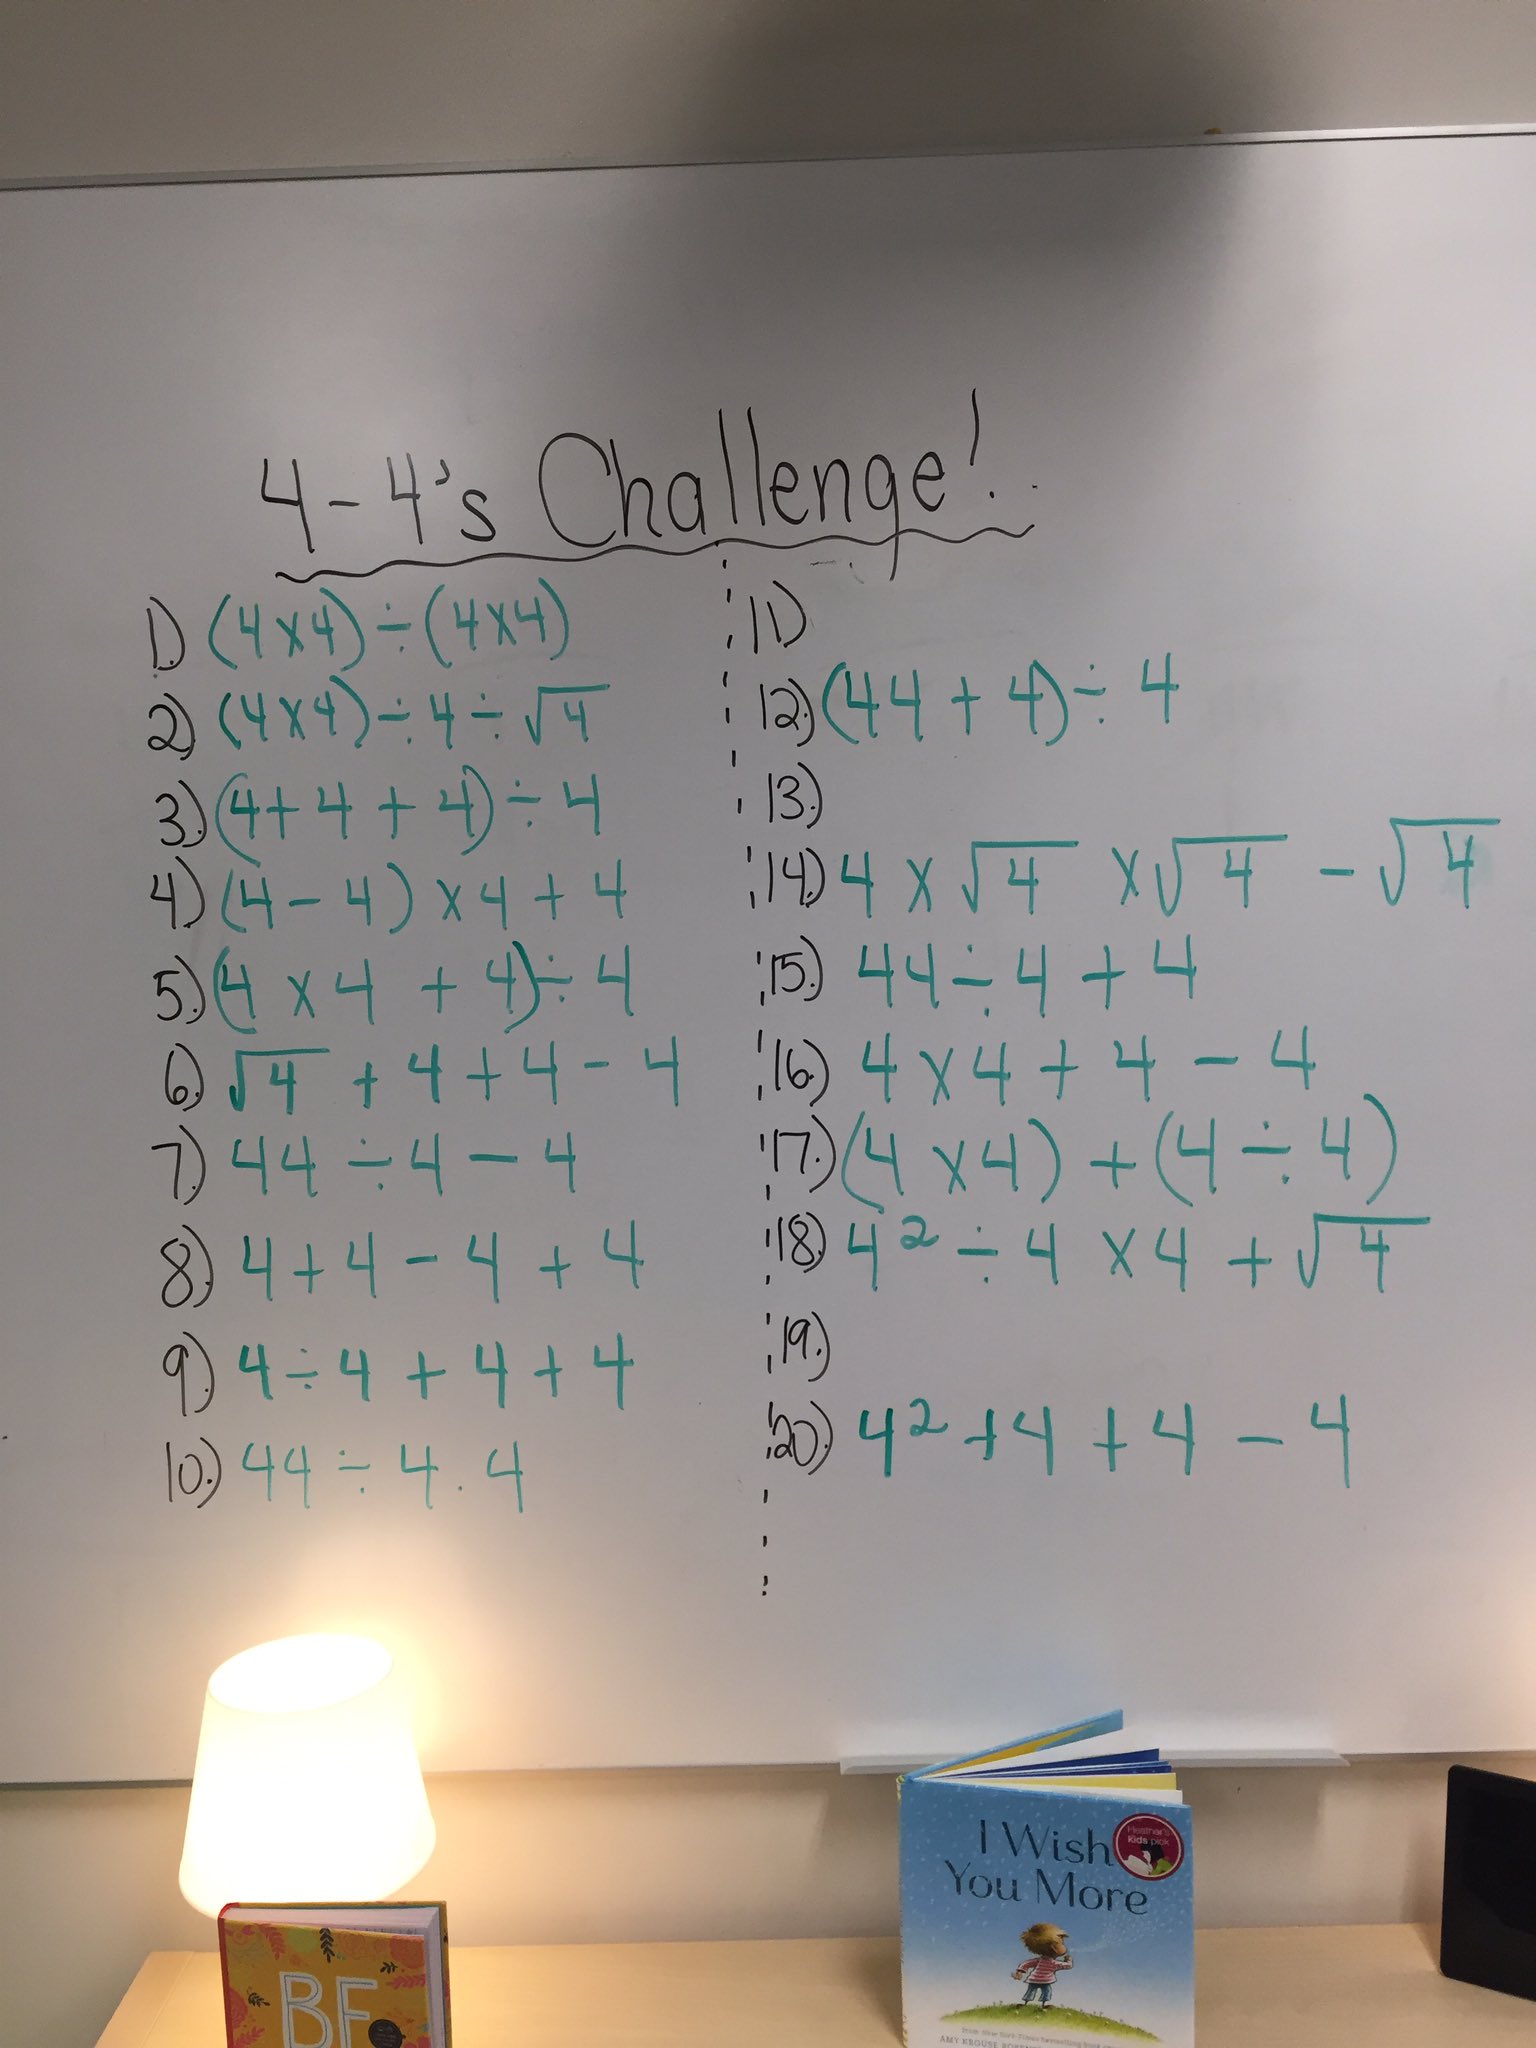 4-4's Challenge!
1.) (4×4)÷(4×4)
2.) (4×4)÷4÷√4
3.) (4+4+4)÷4
4.) (4-4)×4+4
5.) (4×4+4)÷4
6.) √4+4+4-4
7.) 44÷4-4
8.) 4+4-4+4
9.) 4÷4+4+4
10.) 44÷4.4
11)
12.) (44+4)÷4
13.)
14.) 4×√4×√4-√4
15.) 44÷4+4
16.) 4×4+4-4
17.) (4×4)+(4÷4)
18.) 4²÷4×4+√4
19.)
20.) 4²+4+4-4
I Wish
You More
Heather's
Kids pick
AMY KROUSE
BF